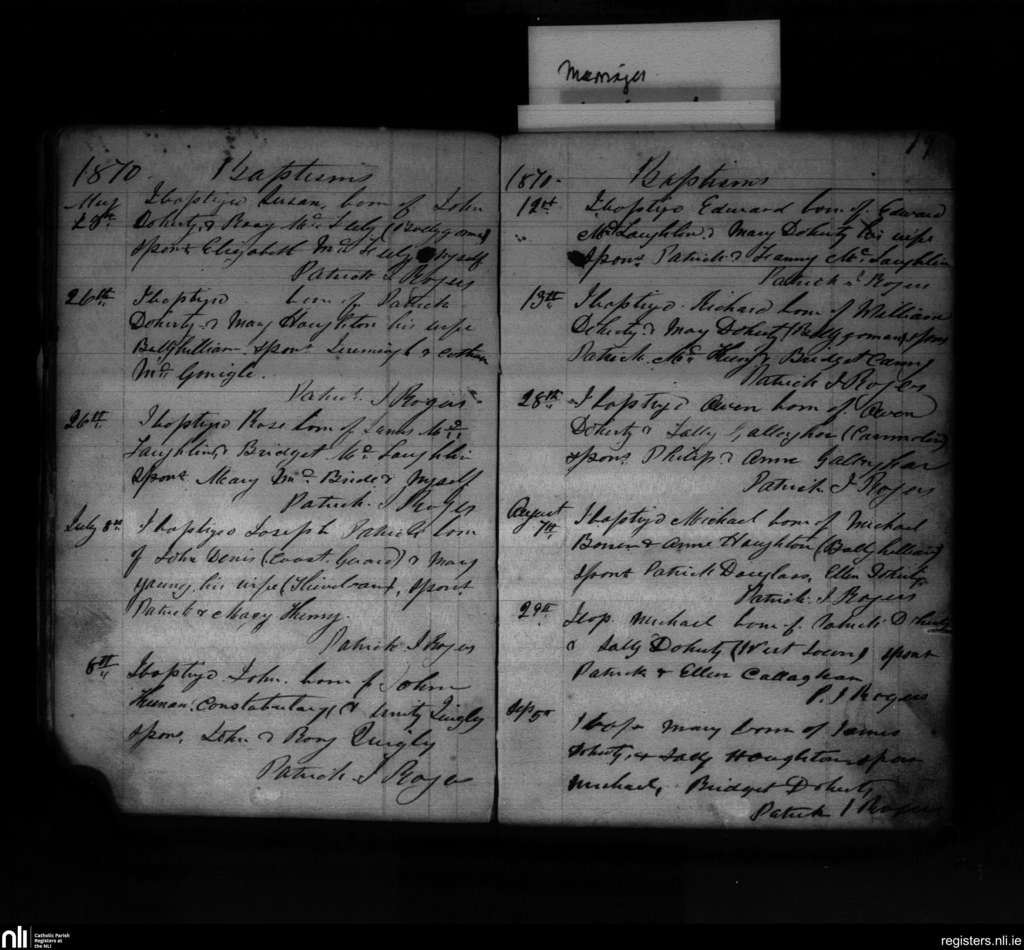 Marriages
1870. Baptisms
May
23th I baptized Susan, born of John
Doherty, & Rosy Mc
spons Elizabeth Mc & Myself
Patrick J Rogers
26th I baptized born of Patrick
Doherty & Mary Haughton his wife
Ballyhillian. spons Jeremiagh &
Mc Gonigle.
Patrick J Rogers
26th. I baptized Rose born of James Mc
Laughlin & Bridget Mc Laughlin
spons Mary Mc Bride & Myself
Patrick J Rogers
July 3rd. I baptized Joseph Patrick born
of John Denis (Coast Guard) & Mary
young his wife, spons
Patrick & Mary
Patrick J Rogers
8th I baptized John. born of John
Constabulary, & Quigley
spons, John & Rosy Quigly
Patrick J Rogers
19
1870. Baptisms
12th I baptized Edward born of Edward
Mc Laughlin & Mary Doherty his wife
Spons Patrick & Fanny Mc Laughlin
Patrick J Rogers
13th I baptized Richard born of William
Doherty & Mary Doherty (Ballygorman) spons
Patrick Mc & Bridget Canny
Patrick J Rogers
28th. I baptized Owen born of Owen
Doherty & Sally Gallaghar
spons Philip & Anne Gallaghar
Patrick J Rogers
August
7th. I baptized Michael born of Michael
Bonar & Anne Haughton (Ballyhillian)
spons Patrick Douglass, Ellen Doherty
Patrick J Rogers
29th. I bap. Michael born of Patrick Doherty
& Sally Doherty (West Town) spons
Patrick & Ellen Callaghan
P. J Rogers
Sep 5th
I bap Mary born of James
Doherty, & Sally Houghton spons
Michael, Bridget Doherty
Patrick J Rogers
nli Catholic Parish
Registers at
the NLI
registers.nli.ie